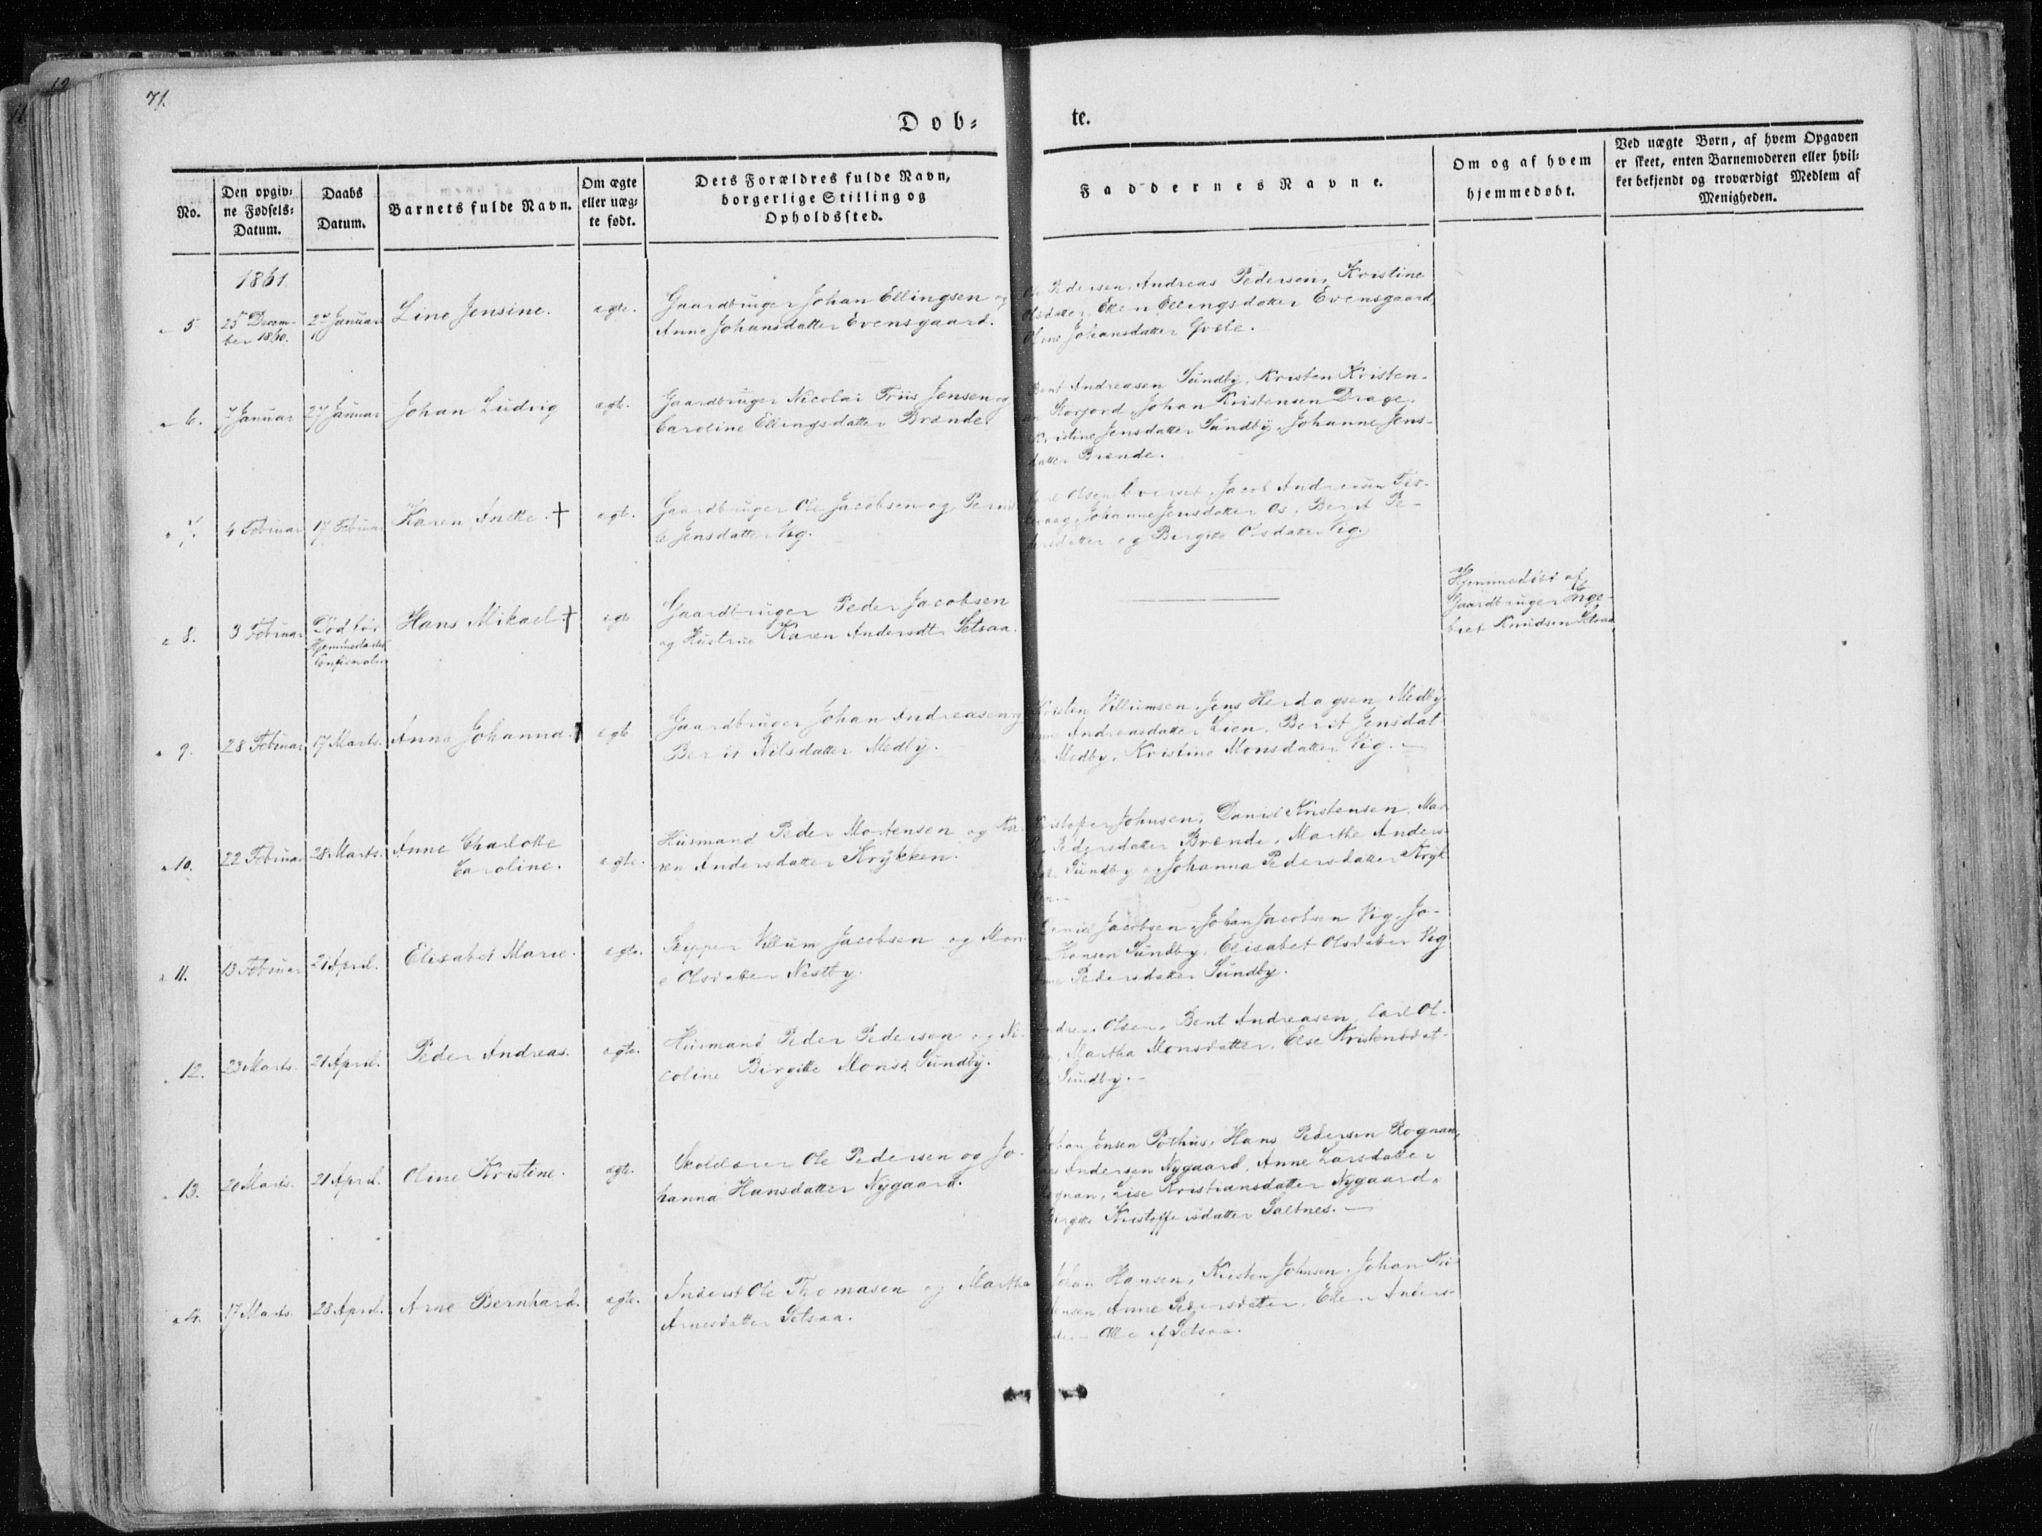 71.
Døb-
te.
No.
Den opgiv-
ne Fødsels-
Datum.
Daabs
Datum.
Barnets fulde Navn.
Om ægte
eller uæg-
te født.
Dets Forældres fulde Navn,
borgerlige Stilling og
Opholdssted.
Faddernes Navne.
Om og af hvem
hjemmedøbt.
Ved uægte Børn, af hvem Opgaven
er skeet, enten Barnemoderen eller hvil-
ket bekjendt og troværdigt Medlem af
Menigheden.
1861.
5
25 Decem-
ber 1860.
Januar
Line Jensine.
ægte.
Gaardbruger Johan Ellingsen og
Anne Johansdatter Evensgaard.
Pedersen, Andreas Pedersen, Kristine
Olsdatter, Ellen Ellingsdatter Evensgaard,
Oline Johansdatter
6.
7 Januar
27 Januar
Johan Ludvig
ægte.
Gaardbruger Nicolai Friis Jensen og
Caroline Ellingsdatter Brænde.
Bent Andreasen Sundby, Kristen Kristen-
Storjord, Johan Kristensen Drage,
Kristine Jensdatter Sundby, Johanne Jens-
datter Brænde.
7.
4 Februar
17 Februar
Karen Anette. †
ægte.
Gaardbruger Ole Jacobsen og Pernil-
le Jensdatter Vig.
Olsen Jacob Andreasen
Johanne Jensdatter Os, Berit Pe-
dersdatter og Birgitte Olsdatter Vig.
8.
3 Februar
Død før
Hjemmedaabs
Confirmation
Hans Mikael. †
ægte
Gaardbruger Peder Jacobsen
og Hustrue Karen Andersdtr Setsaa.
Hjemmedøbt af
Gaardbruger Inge-
bret Knudsen Setsaa
9.
28 Februar
17 Marts.
Anna Johanna. †
ægte
Gaardbruger Johan Andreasen og
Berit Nilsdatter Medby.
Kristen Villumsen, Jens Herdagsen Medby,
Andreasdatter Lien, Berit Jensdat-
ter Medby, Kristine Monsdatter Vig.
10.
22 Februar
28 Marts.
Anne Charlotte
Caroline.
ægte.
Husmand Peder Mortensen og Ka-
ren Andersdatter Krykken.
Kristoper Johnsen, Daniel Kristensen, Mar-
Pedersdatter Brænde, Marthe Anders-
Sundby og Johanna Pedersdatter Kryk-
11.
13 Februar
21 April.
Elisabet Marie.
ægte.
Skipper Villum Jacobsen og
Olsdatter Nestby.
Daniel Jacobsen, Johan Jacobsen Vig, Jo-
Hansen Sundby, Elisabet Olsdatter Vig
Pedersdatter Sundby.
12.
23 Marts.
21 April.
Peder Andreas.
ægte.
Husmand Peder Pedersen og Ni-
coline Birgitte Monsd. Sundby.
Olsen, Bent Andreasen, Carl Ol-
Martha Monsdatter, Else Kristensdat-
Sundby.
13.
20 Marts.
21 April.
Oline Kristine.
ægte.
Skolelærer Ole Pedersen og Jo-
hanna Hansdatter Nygaard.
Johan Jensen Pothus, Hans Pedersen Rognan,
Andersen Nygaard, Anne Larsdatter
Rognan, Lise Kristiansdatter Nygaard,
Birgitte Kristoffersdatter Saltnes.
14.
17 Marts.
28 April.
Arne Bernhard.
ægte.
Inderst Ole Thomasen og Martha
Arnesdatter Setsaa.
Johan Hansen, Kristen Johnsen, Johan Kri-
stensen, Anne Pedersdatter, Ellen Anders-
Alle af Setsaa.